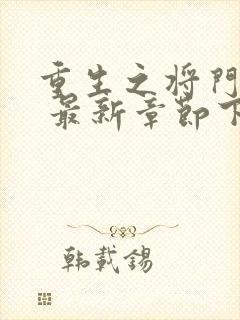 重生之将門
最新章節下
韩載錫